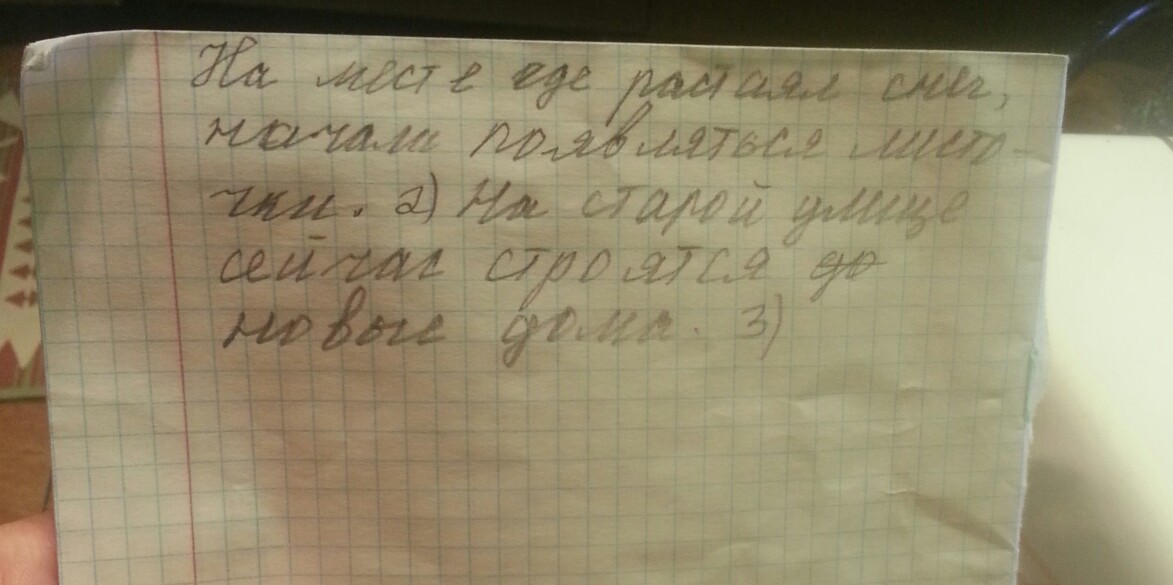 На месте где растаял снег,
начали появляться листо-
чки. 2) На старой улице
сейчас строятся до
новые дома. 3)